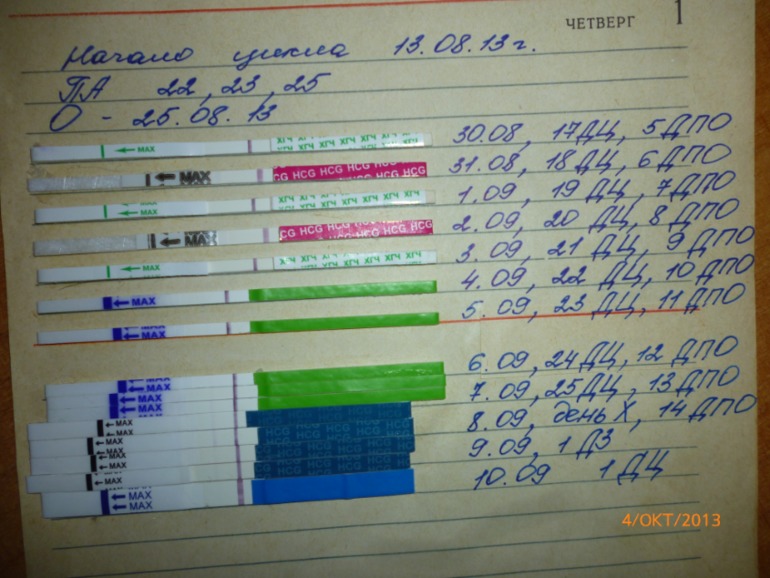 ЧЕТВЕРГ 1
Начало цикла 13.08.13г.
ПА 22, 23, 25
О - 25.08.13
← MAX ХГЧ ХГЧ ХГЧ ХГЧ ХГЧ 30.08, 17ДЦ, 5ДПО
← MAX HCG HCG HCG HCG HCG 31.08, 18ДЦ, 6ДПО
← MAX ХГЧ ХГЧ ХГЧ ХГЧ ХГЧ 1.09, 19 ДЦ, 7ДПО
← MAX CG HCG HCG HCG HCG 2.09, 20 ДЦ, 8 ДПО
← MAX ХГЧ ХГЧ ХГЧ ХГЧ 3.09, 21 ДЦ, 9 ДПО
← MAX 4.09, 22 ДЦ, 10 ДПО
← MAX 5.09, 23 ДЦ, 11 ДПО
← MAX 6.09, 24 ДЦ, 12 ДПО
← MAX 7.09, 25ДЦ, 13 ДПО
← MAX
← MAX HCG HCG HCG HCG 8.09, день Х, 14 ДПО
← MAX HCG HCG HCG HCG 9.09, 1 ДЗ
← MAX HCG HCG HCG HCG 10.09 1 ДЦ
← MAX
← MAX
MAX
4/ОКТ/2013